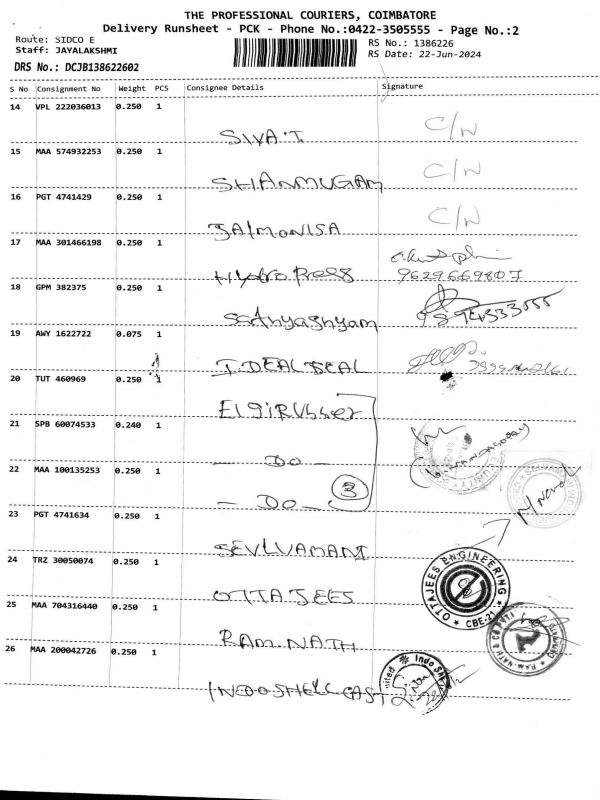 THE PROFESSIONAL COURIERS, COIMBATORE
Delivery Runsheet - PCK - Phone No.:0422-3505555 - Page No.:2
Route: SIDCO E
Staff: JAYALAKSHMI
RS No.: 1386226
RS Date: 22-Jun-2024
DRS No.: DCJB138622602
S No Consignment No Weight PCS Consignee Details Signature
14 VPL 222036013 0.250 1
SIVA.T C/N
15 MAA 574932253 0.250 1
SHANMUGAM C/N
16 PGT 4741429 0.250 1
JAIMONISA C/N
17 MAA 301466198 0.250 1
Hydro Press 9629669807
18 GPM 382375 0.250 1
Sathyashyam
19 AWY 1622722 0.075 1
I.DEAL SEAL
20 TUT 460969 0.250 1
Elgi Rubber
21 SPB 60074533 0.240 1
- Do -
22 MAA 100135253 0.250 1
- Do - 3
23 PGT 4741634 0.250 1
SEVLVAMANI
24 TRZ 30050074 0.250 1
OTTAJEES OTTAJEES ENGINEERING * CBE-21 *
25 MAA 704316440 0.250 1
RAM.NATH
26 MAA 200042726 0.250 1
INDOSHELL CAST